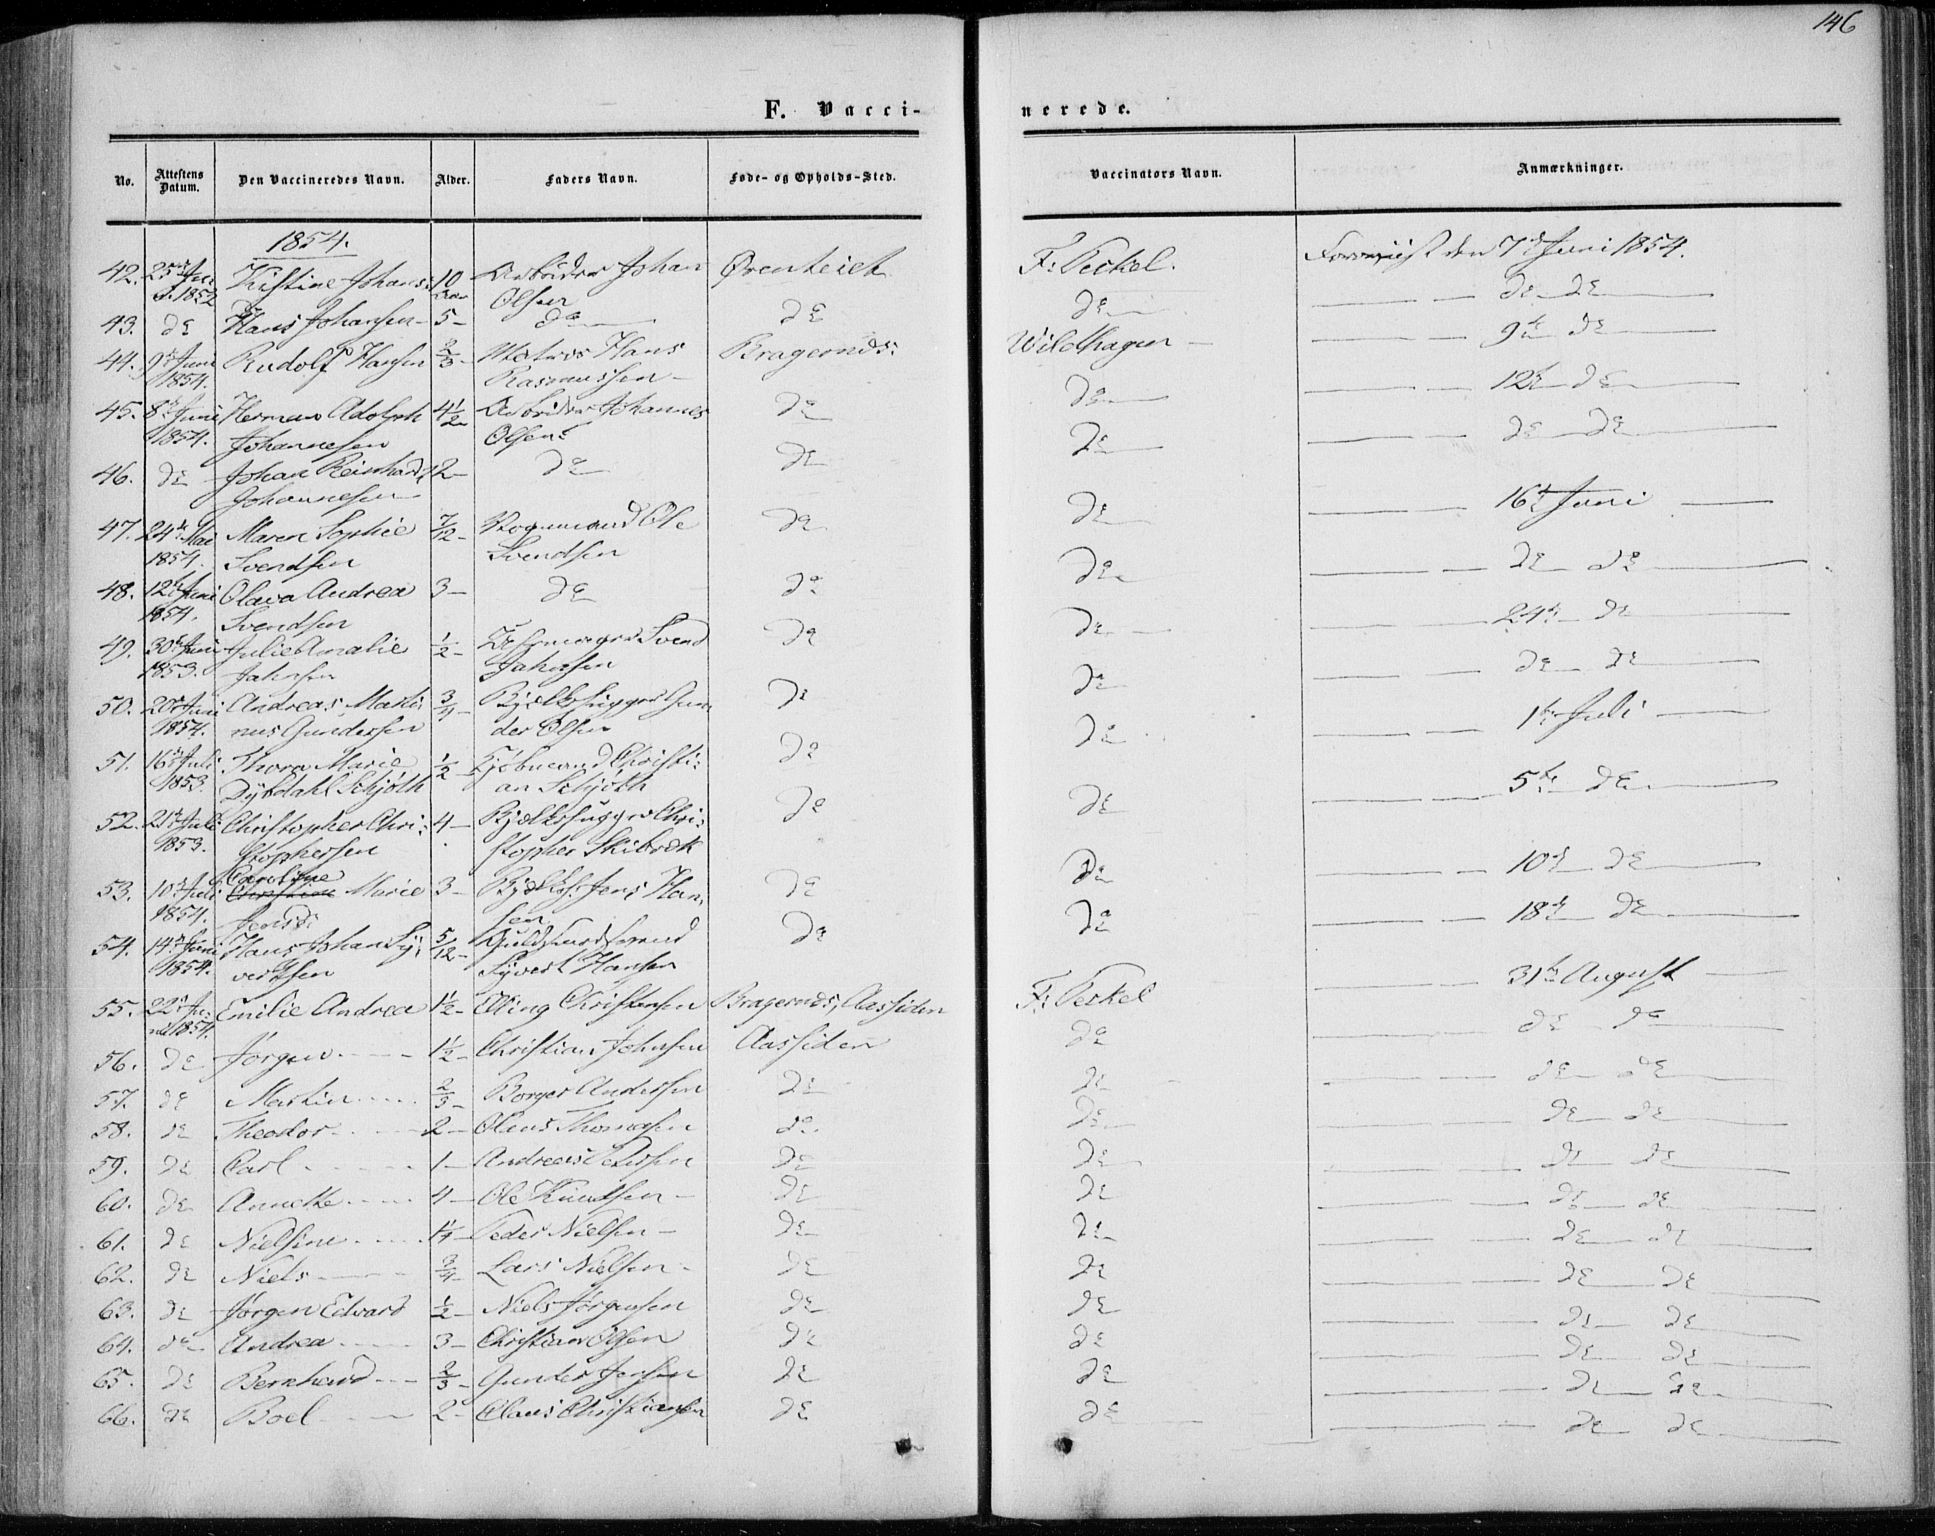 146
F. Vacci-
nerede.
No.
Attestens Datum.
Den Vaccineredes Navn.
Alder.
Faders Navn.
Føde- og Opholds-Sted.
Vaccinators Navn.
Anmærkninger.
1854.
42. 25de Juni 1852 Kristine Johans: 10 Arbeider Johan Olsen F: Peckel. Foreviist den 7de Juni 1854.
43. do Hans Johansen 5 do do do do do
44. 9de Juni 1854. Rudolf Hansen 2/3 Matros Hans Rasmussen Bragernæs: Wildhagen 9de do
45. 8de Juni 1854. Herman Adolph Johannesen 4 1/2 Arbeider Johannes Olsen do do 12te do
46. do Johan Reinhard Johannesen 2 do do do do do
47. 24de Mai 1854. Maren Sophie Svendsen 7/12 Ole Svendsen do do 16de Juni
48. 12te Juni 1854. Olava Andrea Svendsen 3 do do do do do
49. 30te Juni 1853. Julie Amalie Jahnsen 1/2 Svend Jahnsen do do 24de do
50. 20de Juni 1854. Andreas Marti: nus Gundersen 3/4 Bjelkehugger Gun: der Olsen do do do do
51. 16de Juli 1853. Thora Marie Dybdahl Schjøth 1/2 Kjøbmand Christi: an Schjøth do do 1ste Juli
52. 21de Juli 1853. Christopher Chri: stophersen 4 Bjelkehugger Chri: stopher Skibræk do do 5te do
53. 10de Juli 1854. Caroline Marie Jensd: 3 Bjelkeh: Jens Han: sen do do 10de do
54. 14de Juni 1854. Hans Johan Sy: vertsen 5/12 Guldsmedsvend Syvert Hansen do do 18de do
55. 22de Ju: ni 1854. Emilie Andrea 1 1/2 Elling Christensen Bragernæs, Aassiden F: Peckel 31te August
56. do Jørgen 1 1/2 Christian Johnsen Aassiden do do do
57. do Martin 2/3 Borger Andersen do do do do
58. do Theodor 2 Olaus Thomasen do do do do
59. do Carl 1 Andreas Petersen do do do do
60. do Annette 4 Ole Knudsen do do do do
61. do Nielsine 1/4 Peder Nielsen do do do do
62. do Niels 3/4 Lars Nielsen do do do do
63. do Jørgen Edvard 1/2 Niels Jørgensen do do do do
64. do Andrea 3 Christian Olsen do do do do
65. do Bernhard 2/3 Gunder Jensen do do do do
66. do Boel 2 Claus Christiansen do do do do